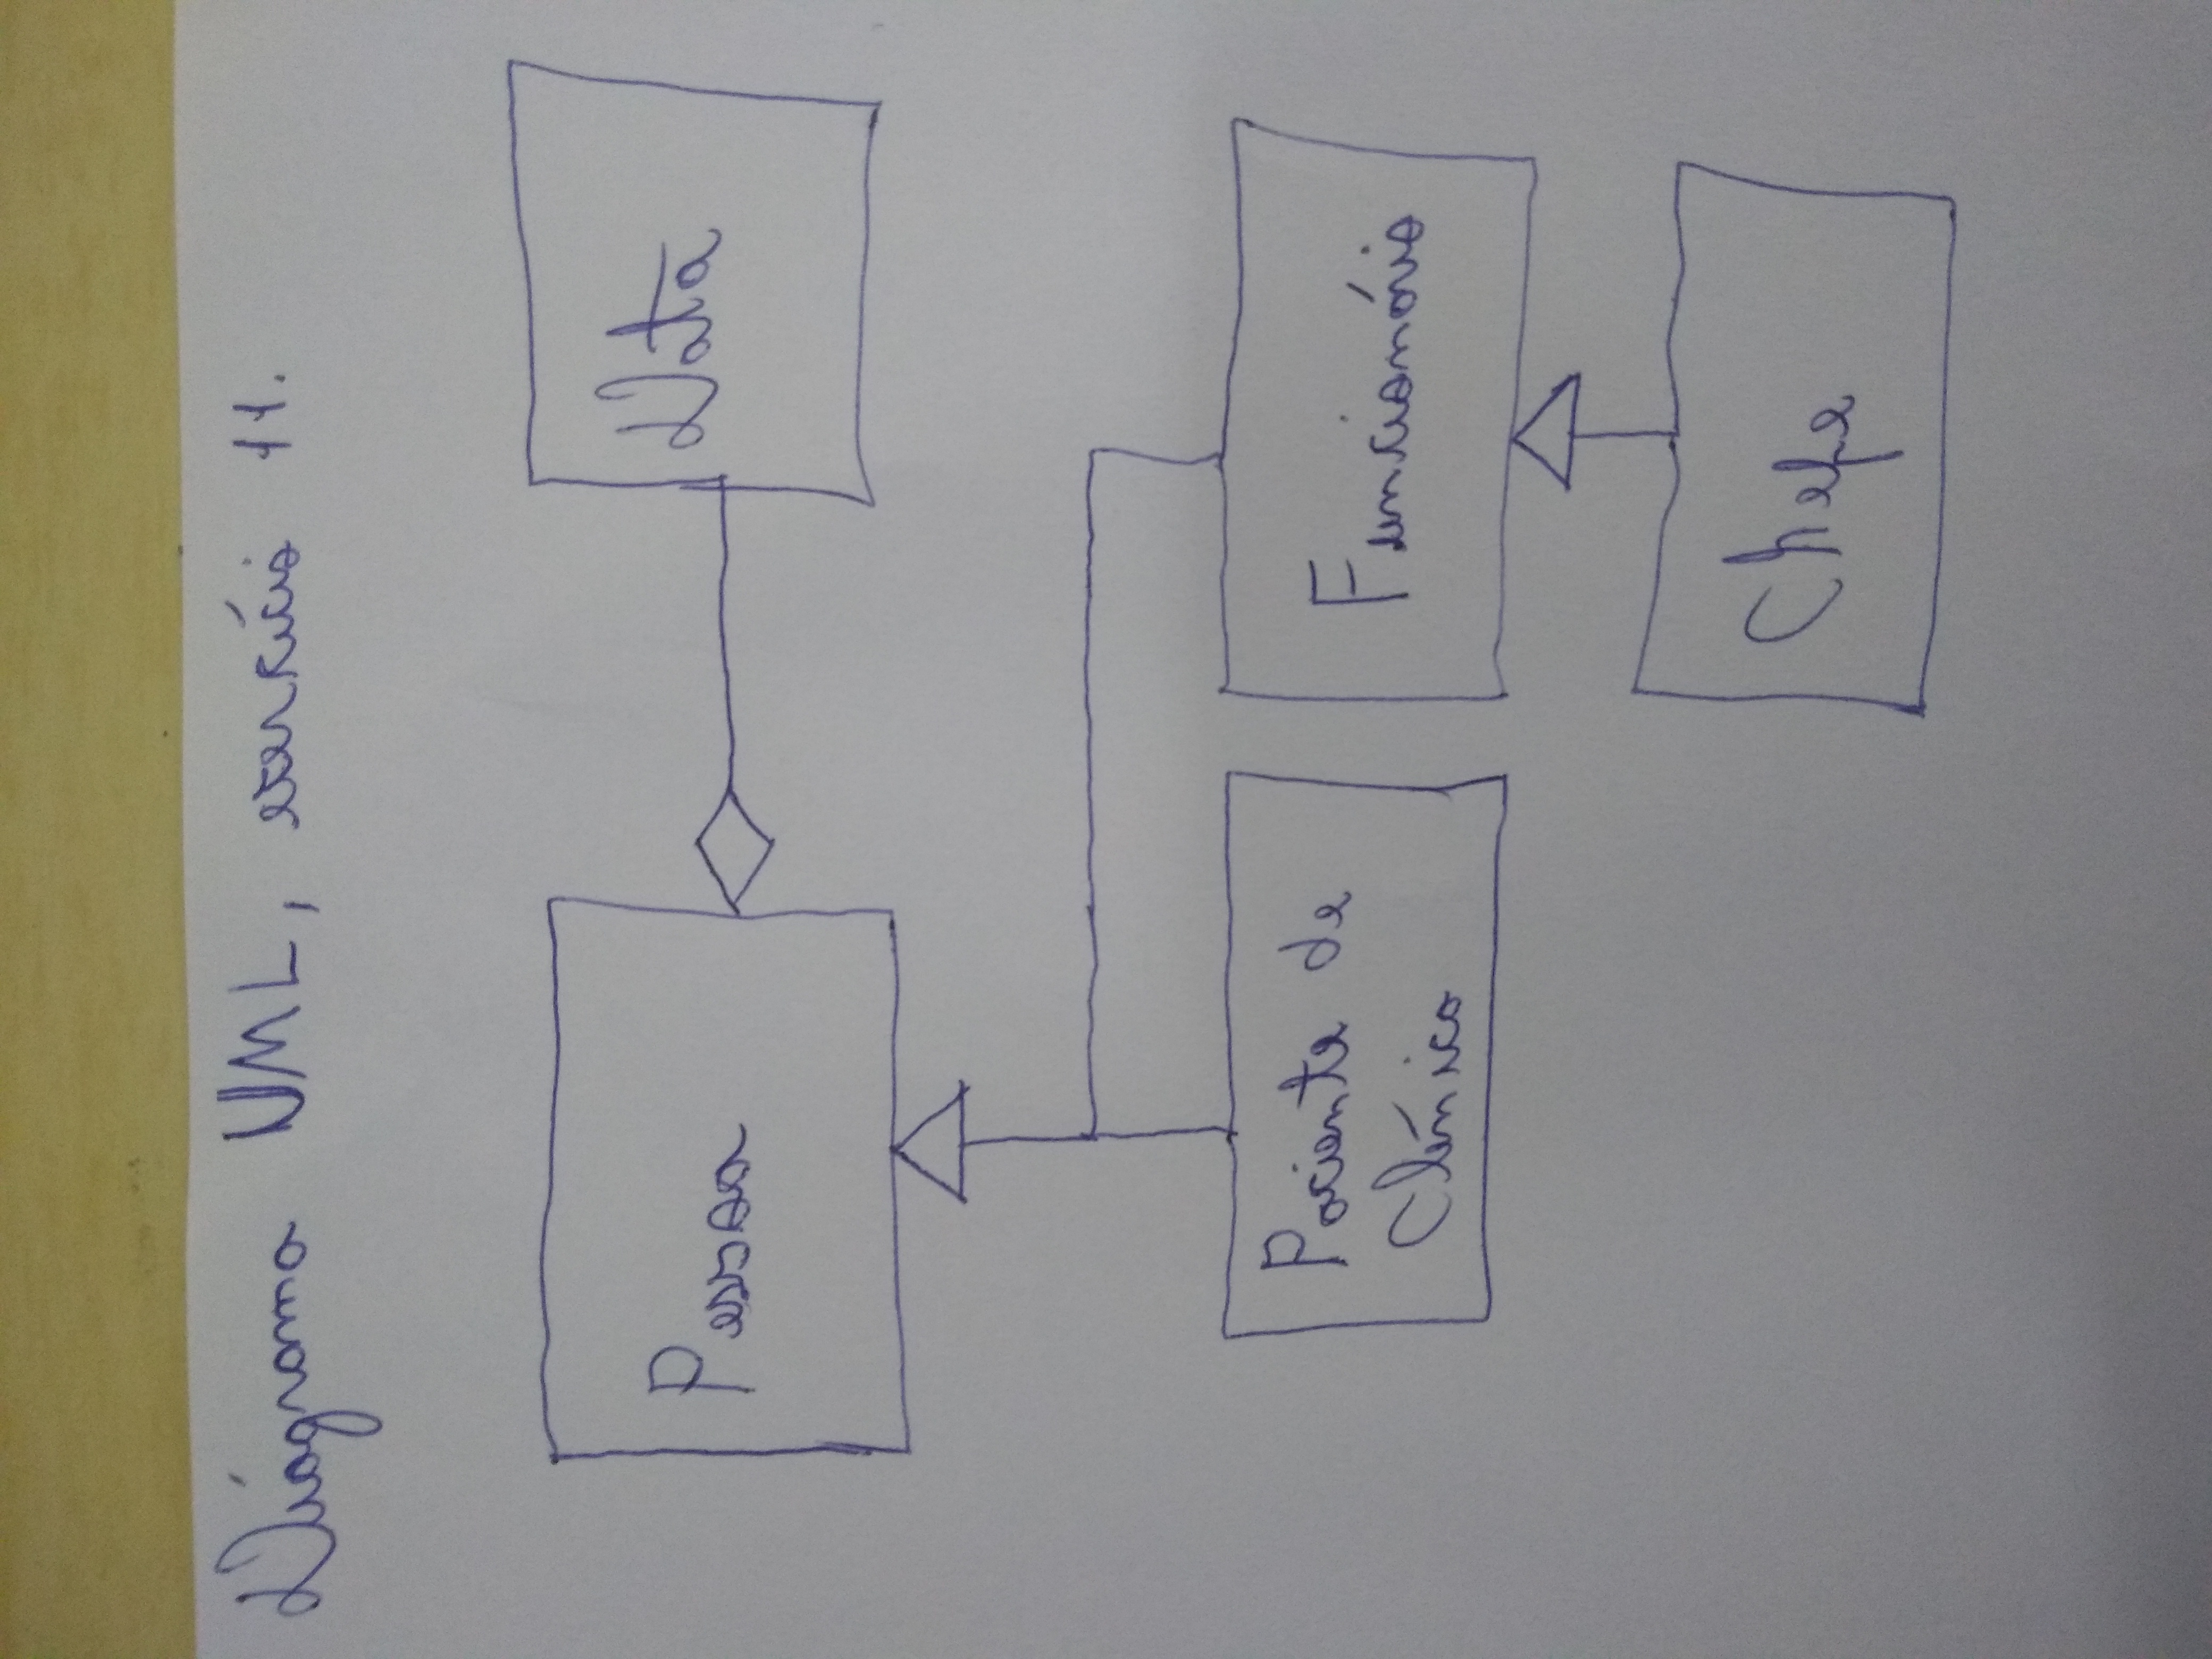 Diagrama UML, exercício 11.
Pessoa
Data
Paciente de
Clínica
Funcionário
Chefe